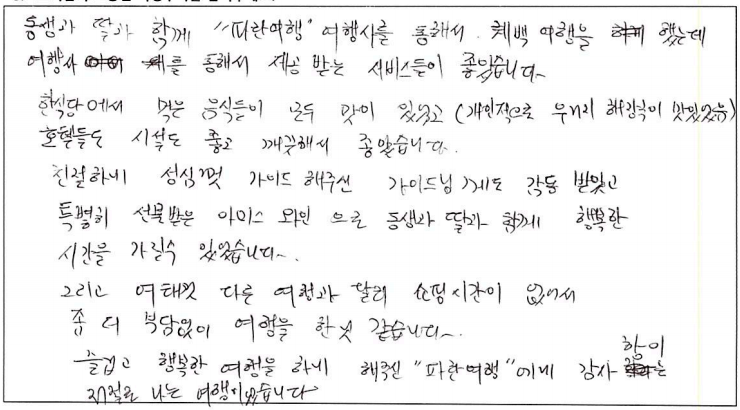 동생과 딸과 함께 "파란여행" 여행사를 통해서 체백 여행을 했는데
여행사를 통해서 제공 받는 서비스들이 좋았습니다~
한식당에서 먹은 음식들이 모두 맛이 있었고 (개인적으로 우거리 해장국이 맛있었음)
호텔들도 시설도 좋고 깨끗해서 좋았습니다.
친절하게 성심껏 가이드 해주신 가이드님께도 감동 받았고
특별히 선물받은 아이스 와인 으로 동생과 딸과 함께 행복한
시간을 가질수 있었습니다~.
그리고 여태껏 다른 여행과 달리 쇼핑시간이 없어서
좀 더 부담없이 여행을 한것 같습니다~.
즐겁고 행복한 여행을 하게 해주신 "파란여행"에게 감사 함이
저절로 나는 여행이었습니다